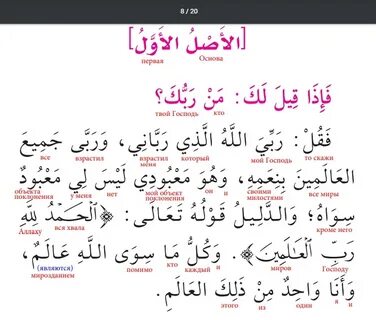 8 / 20
[الأَصْلُ الأَوَّلُ]
первая Основа
فَإِذَا قِيلَ لَكَ: مَنْ رَبُّكَ؟
твой Господь кто
فَقُلْ: رَبِّيَ اللَّهُ الَّذِي رَبَّانِي، وَرَبَّى جَمِيعَ
все взрастил взрастил меня который мой Господь то скажи
العَالَمِينَ بِنِعَمِهِ، وَهُوَ مَعْبُودِي لَيْسَ لِي مَعْبُودٌ
объекта поклонения у меня нет мой объект поклонения он и своими милостями все миры
سِوَاهُ؛ وَالدَّلِيلُ قَوْلُهُ تَعَالَى: ﴿الْحَمْدُ لِلَّهِ
Аллаху вся хвала кроме него
رَبِّ الْعَالَمِينَ﴾. وَكُلُّ مَا سِوَى اللَّهِ عَالَمٌ،
(являются) мирозданием помимо кто каждый и миров Господу
وَأَنَا وَاحِدٌ مِنْ ذَلِكَ العَالَمِ.
этого из один я и